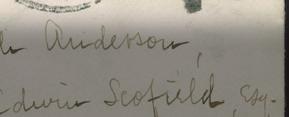 Anderson,
Edwin Scofield, Esq.